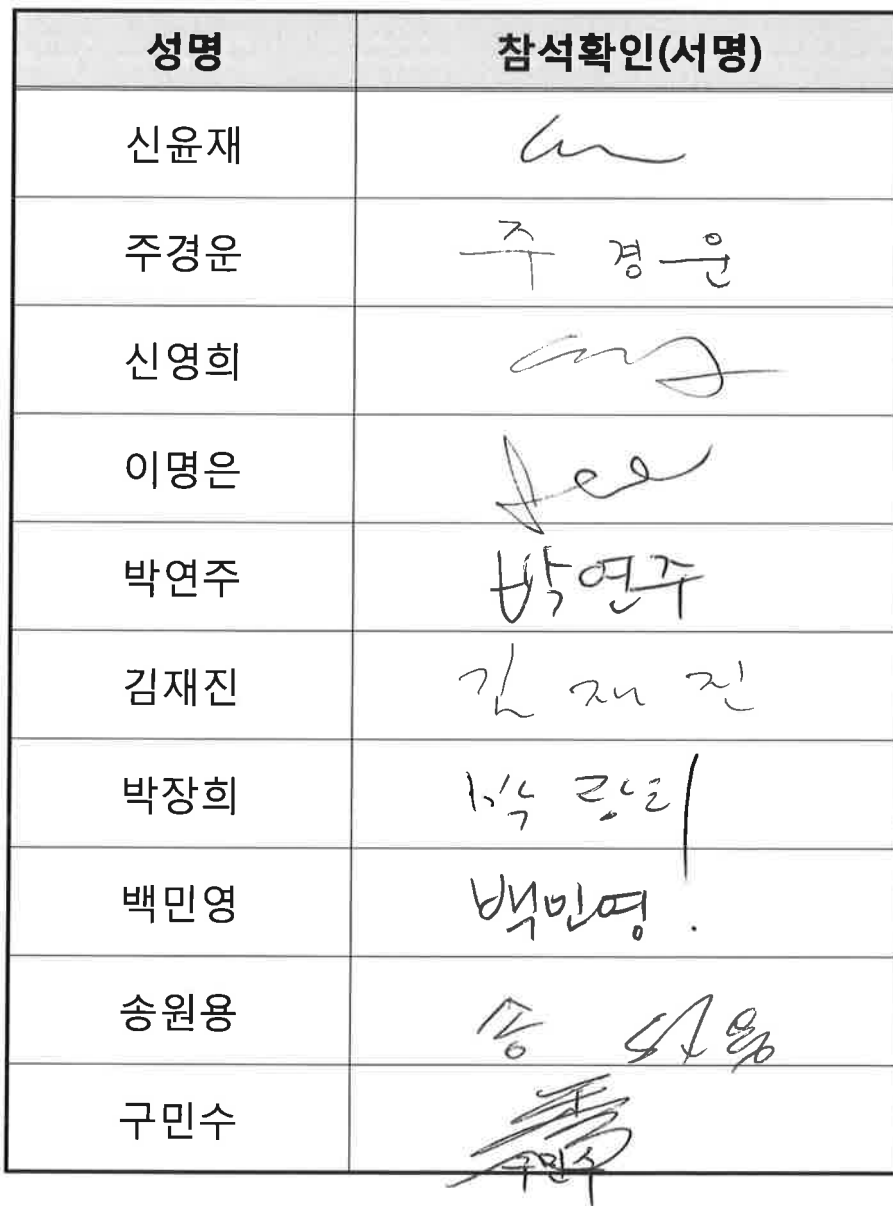 성명 참석확인(서명)
신윤재
주경운 주경운
신영희
이명은
박연주 박연주
김재진 김재진
박장희 박장희
백민영 백민영.
송원용 송원용
구민수 구민수